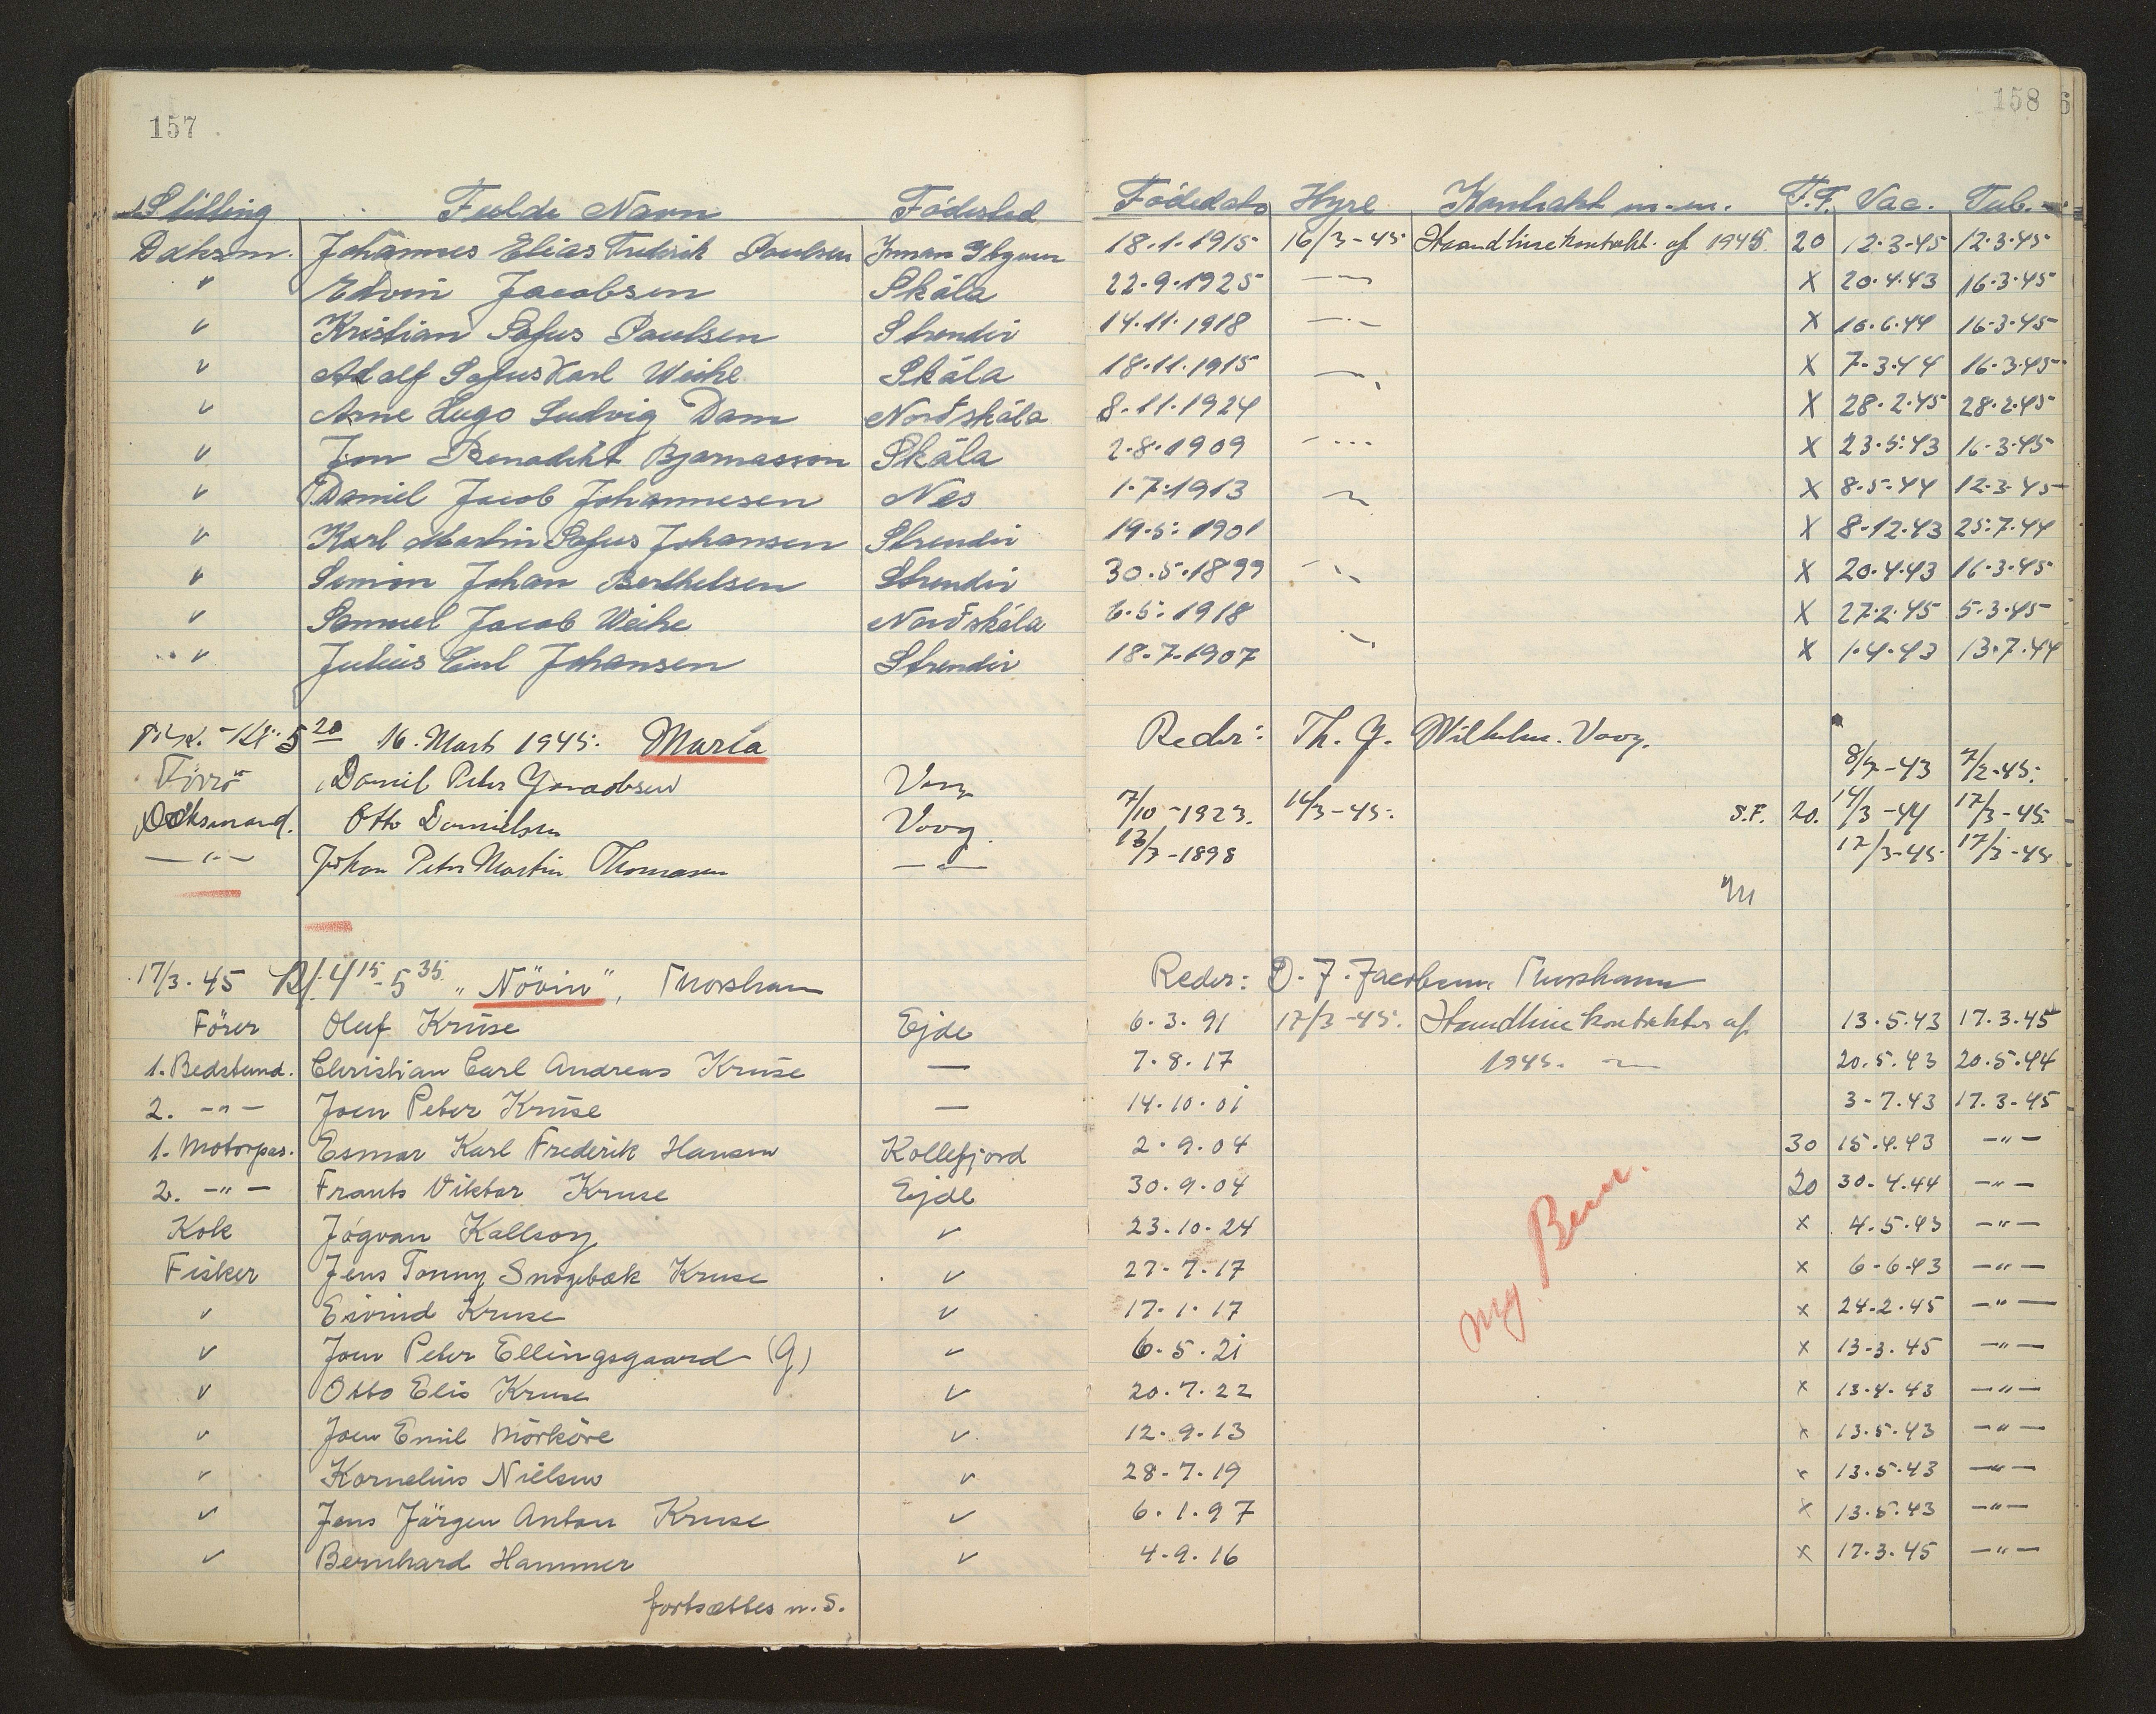 157
158
Stilling Fulde Navn Födested Födedato Hyre Kontrakt m.m. F.F. Vac. Tub.
Dæksm. Johannes Elias Frederik Poulsen 18.1.1915 16/3-45 Haandlinekontrakt af 1945 20 12.3.45 12.3.45
" Edvin Jacobsen Skála 22.9.1925 -"- X 20.4.43 16.3.45
" Kristian Sofus Poulsen Strendir 14.11.1918 -"- X 16.6.44 16.3.45
" Adolf Sofus Karl Weihe Skála 18.11.1915 -"- X 7.3.44 16.3.45
" Arne Hugo Ludvig Dam Norðskála 8.11.1924 X 28.2.45 28.2.45
" Jon Benadikt Bjarnasson Skála 2.8.1909 -"- X 23.5.43 16.3.45
" Daniel Jacob Johannesen Nes 1.7.1913 -"- X 8.5.44 12.3.45
" Karl Martin Sofus Johansen Strendir 19.5.1901 X 8.12.43 25.7.44
" Simion Johan Berthelsen Strendir 30.5.1899 -"- X 20.4.43 16.3.45
" Samuel Jacob Weihe Norðskála 6.5.1918 X 27.2.45 5.3.45
" Julius Emil Johansen Strendir 18.7.1907 -"- X 1.4.43 13.7.44
Kl. 5 20 16. Marts 1945. Maria Reder: Th. J. Wilhelm. Vaag.
Daniel Peter Jonaobsen Vaag 8/7-43 7/2-45.
Dæksmand. Otto Danielsen Vaag 7/10-1923. 16/3-45. S.F. 20. 14/3-44 17/3-45.
-"- Johan Peter Martin Thomasen -"- 13/3-1898 17/3-45 17/3-45
17/3.45 Kl. 4 15 - 5 35. "Növin", Thorshavn Reder: D. J. Jacobsen, Thorshavn
Förer Oluf Kruse Ejde 6.3.91 17/3-45. Haandlinekontrakter af 13.5.43 17.3.45
1. Bedstmd. Christian Carl Andreas Kruse — 7.8.17 1945. 20.5.43 20.5.44
2. -"- Joen Peter Kruse — 14.10.01 3-7.43 17.3.45
1. Motorpas. Esmar Karl Frederik Hansen Kollefjord 2.9.04 30 15.4.43 -"-
2. -"- Frants Viktor Kruse Ejde 30.9.04 20 30.4.44 -"-
Kok Jógvan Kallsoy " 23.10.24 x 4.5.43 -"-
Fisker Jens Tonny Snogebæk Kruse " 27-7.17 x 6-6.43 -"-
" Eivind Kruse " 17.1.17 x 24.2.45 -"-
" Joen Peter Ellingsgaard (G) " 6.5.21 x 13.3.45 -"-
" Otto Elis Kruse " 20.7.22 x 13.4.43 -"-
" Joen Emil Mörköre " 12.9.13 x 13.5.43 -"-
" Kornelius Nielsen " 28-7.19 x 13.5.43 -"-
" Jens Jörgen Anton Kruse " 6.1.97 x 13.5.43 -"-
" Bernhard Hammer " 4.9.16 x 17.3.45 -"-
fortsættes n.S.